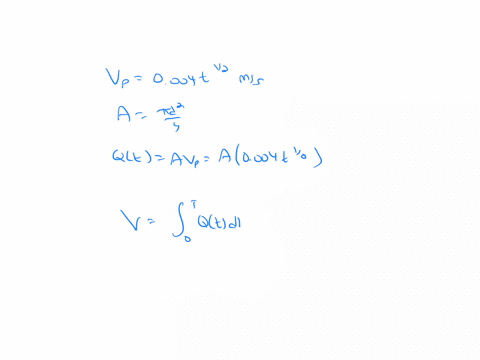 Vp = 0.004 t^1/2 m/s
A = πd²/4
Q(t) = AVp = A(0.004 t^1/2)
V = ∫₀ᵀ Q(t) dt